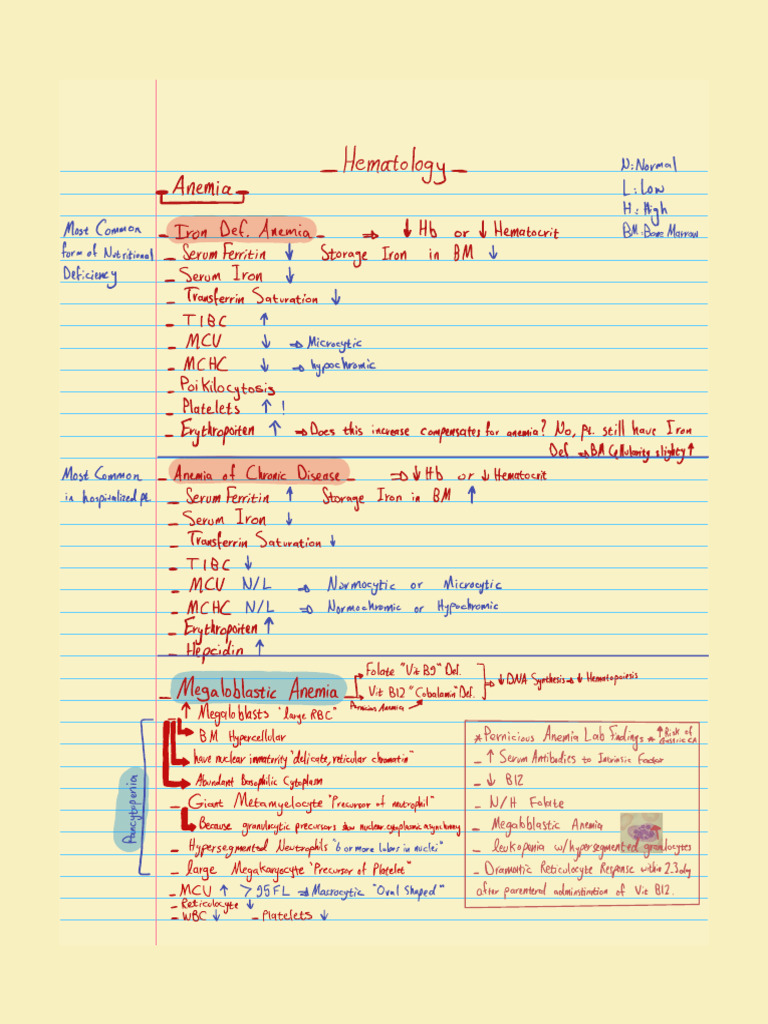 _ Hematology _
N: Normal
L: Low
H: High
BM: Bone Marrow
- Anemia -
Most Common
form of Nutritional
Deficiency
- Iron Def. Anemia - ⇒ ↓ Hb or ↓ Hematocrit
- Serum Ferritin ↓ Storage Iron in BM ↓
- Serum Iron ↓
- Transferrin Saturation ↓
- TIBC ↑
- MCV ↓ ⇒ Microcytic
- MCHC ↓ ⇒ hypochromic
- Poikilocytosis
- Platelets ↑ !
- Erythropoiten ↑ ⇒ Does this increase compensates for anemia? No, pt. still have Iron
Def ⇒ BM Cellularity slighty ↑
Most Common
in hospitalized pt.
- Anemia of Chronic Disease - ⇒ ↓ Hb or ↓ Hematocrit
- Serum Ferritin ↑ Storage Iron in BM ↑
- Serum Iron ↓
- Transferrin Saturation ↓
- TIBC ↓
- MCV N/L ⇒ Normocytic or Microcytic
- MCHC N/L ⇒ Normochromic or Hypochromic
- Erythropoiten ↑
- Hepcidin ↑
- Megaloblastic Anemia
Folate "Vit B9" Def.
Vit B12 "Cobalamin" Def.
Pernicious Anemia
↓ DNA Synthesis → ↓ Hematopoiesis
Pancytopenia
- ↑ Megaloblasts "large RBC"
BM Hypercellular
have nuclear immaturity "delicate, reticular chromatin"
Abundant Basophilic Cytoplasm
- Giant Metamyelocyte "Precursor of neutrophil"
Because granulocytic precursors show nuclear cytoplasmic asynchrony
- Hypersegmented Neutrophils "6 or more lobes in nuclei"
- large Megakaryocyte "Precursor of Platelet"
- MCV ↑ > 95 FL ⇒ Macrocytic "Oval Shaped"
- Reticulocyte ↓
- WBC ↓ - Platelets ↓
* Pernicious Anemia Lab Findings * ↑ Risk of Gastric CA
- ↑ Serum Antibodies to Intrinsic Factor
- ↓ B12
- N/H Folate
- Megaloblastic Anemia
- leukopenia w/hypersegmented granulocytes
- Dramatic Reticulocyte Response within 2-3 day
after parenteral adminstration of Vit B12.